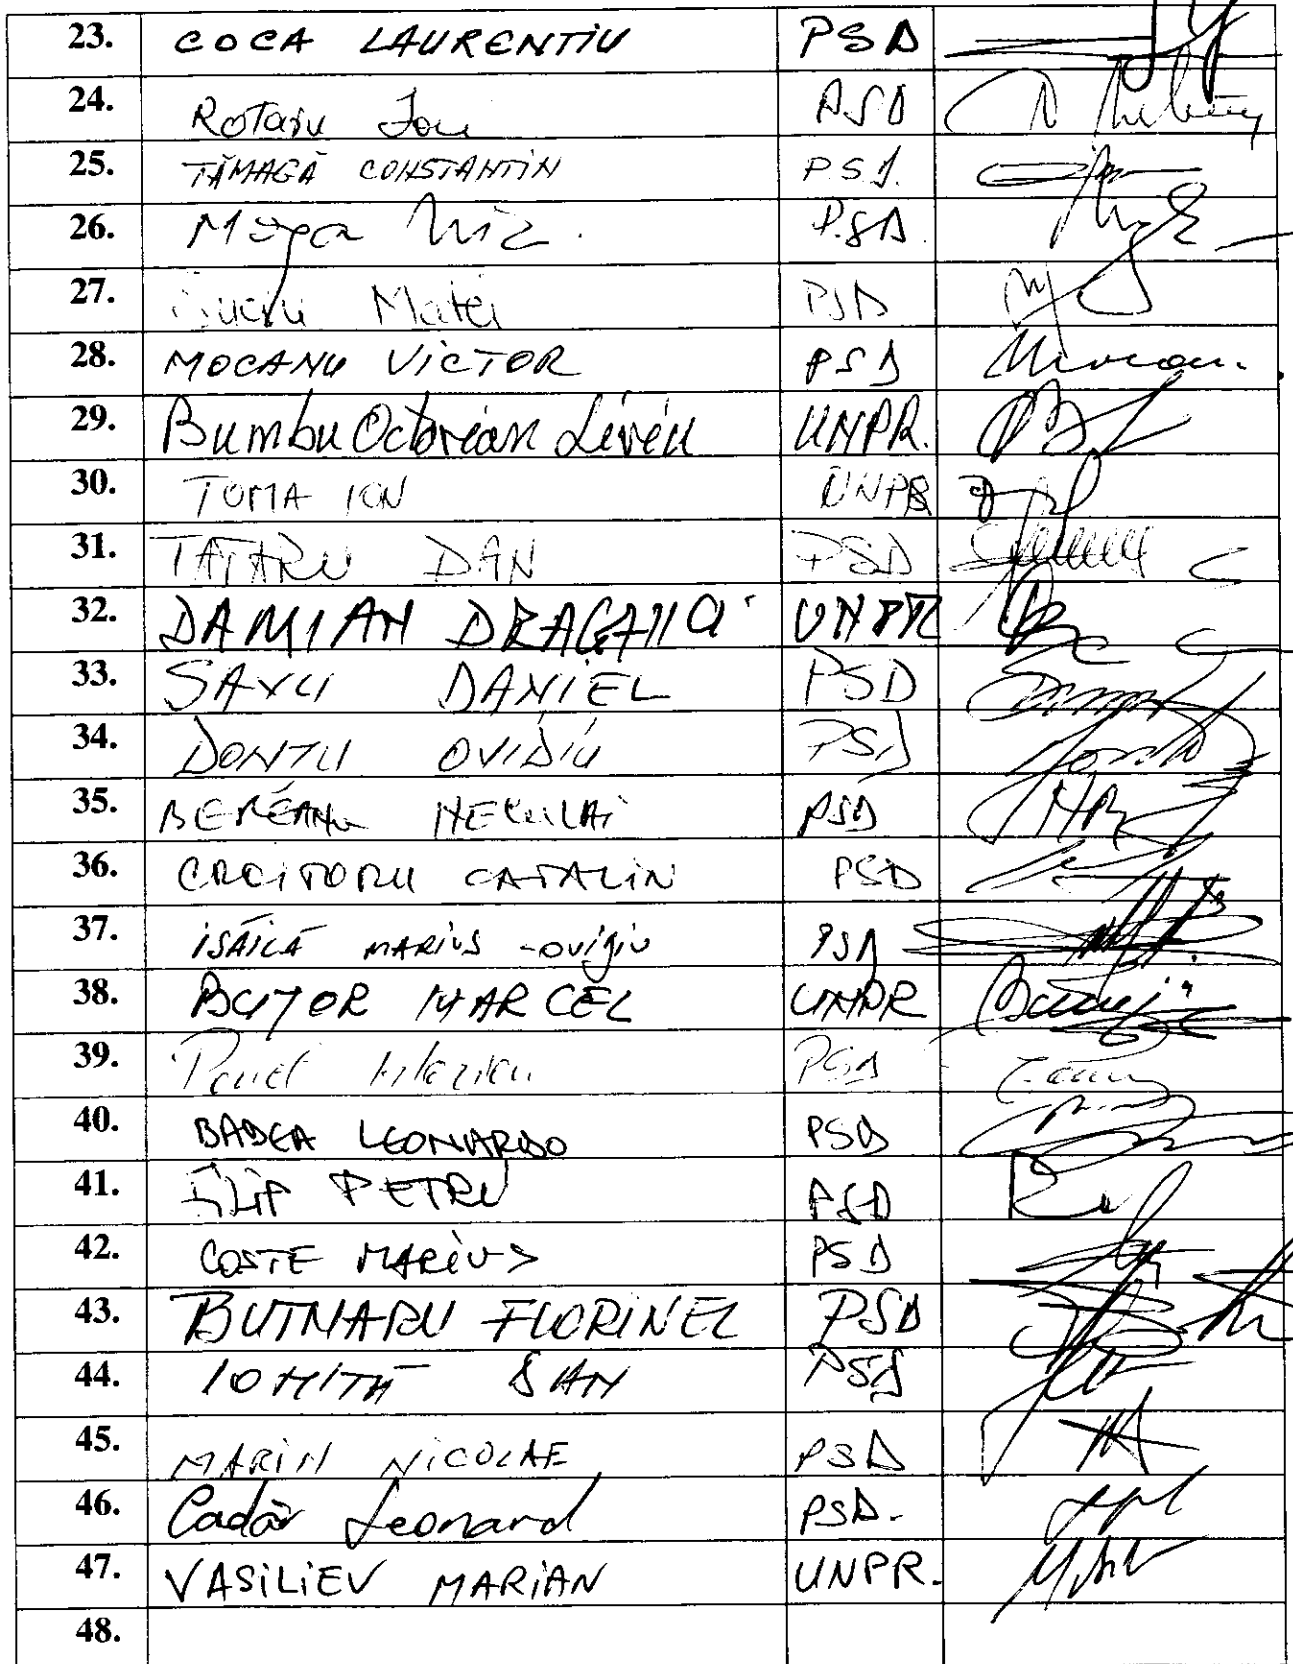 23. COCA LAURENTIU PSD
24. Rotaru Ion PSD
25. TĂMAGĂ CONSTANTIN PSD.
26. PSD.
27. Suciu Matei PSD
28. MOCANU VICTOR PSD
29. Bumbu Octavian Liviu UNPR.
30. TOMA ION UNPR
31. TATARU DAN PSD
32. DAMIAN DRAGAN UNPR
33. SAVU DANIEL PSD
34. DONTU OVIDIU PSD
35. BEREANU NECULAI PSD
36. CROITORU CATALIN PSD
37. ISĂILĂ MARIUS - OVIDIU PSD
38. BUTOR MARCEL UNPR
39. Pavel PSD
40. BADEA LEONARDO PSD
41. FILIP PETRU PSD
42. COSTE MARIUS PSD
43. BUTNARU FLORINEL PSD
44. IOMITĂ DAN PSD
45. MARIN NICOLAE PSD
46. Cadăr Leonard PSD.
47. VASILIEV MARIAN UNPR.
48.